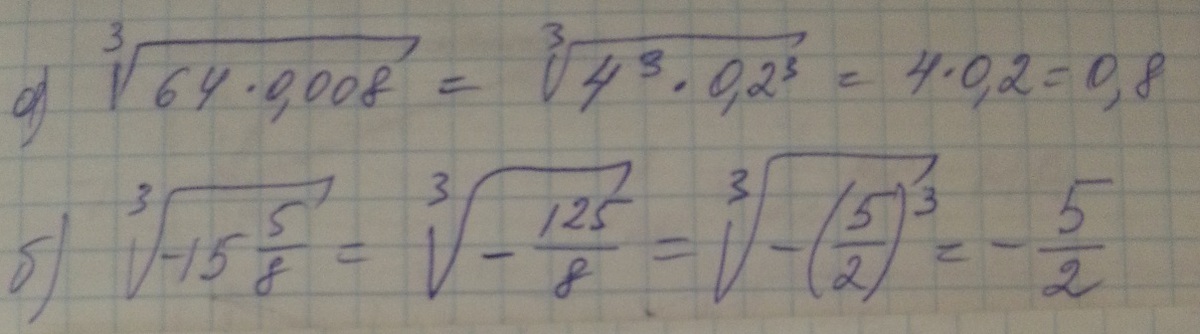 а) ∛(64 · 0,008) = ∛(4³ · 0,2³) = 4 · 0,2 = 0,8
б) ∛(-15 5/8) = ∛(- 125/8) = ∛(-(5/2)³) = - 5/2